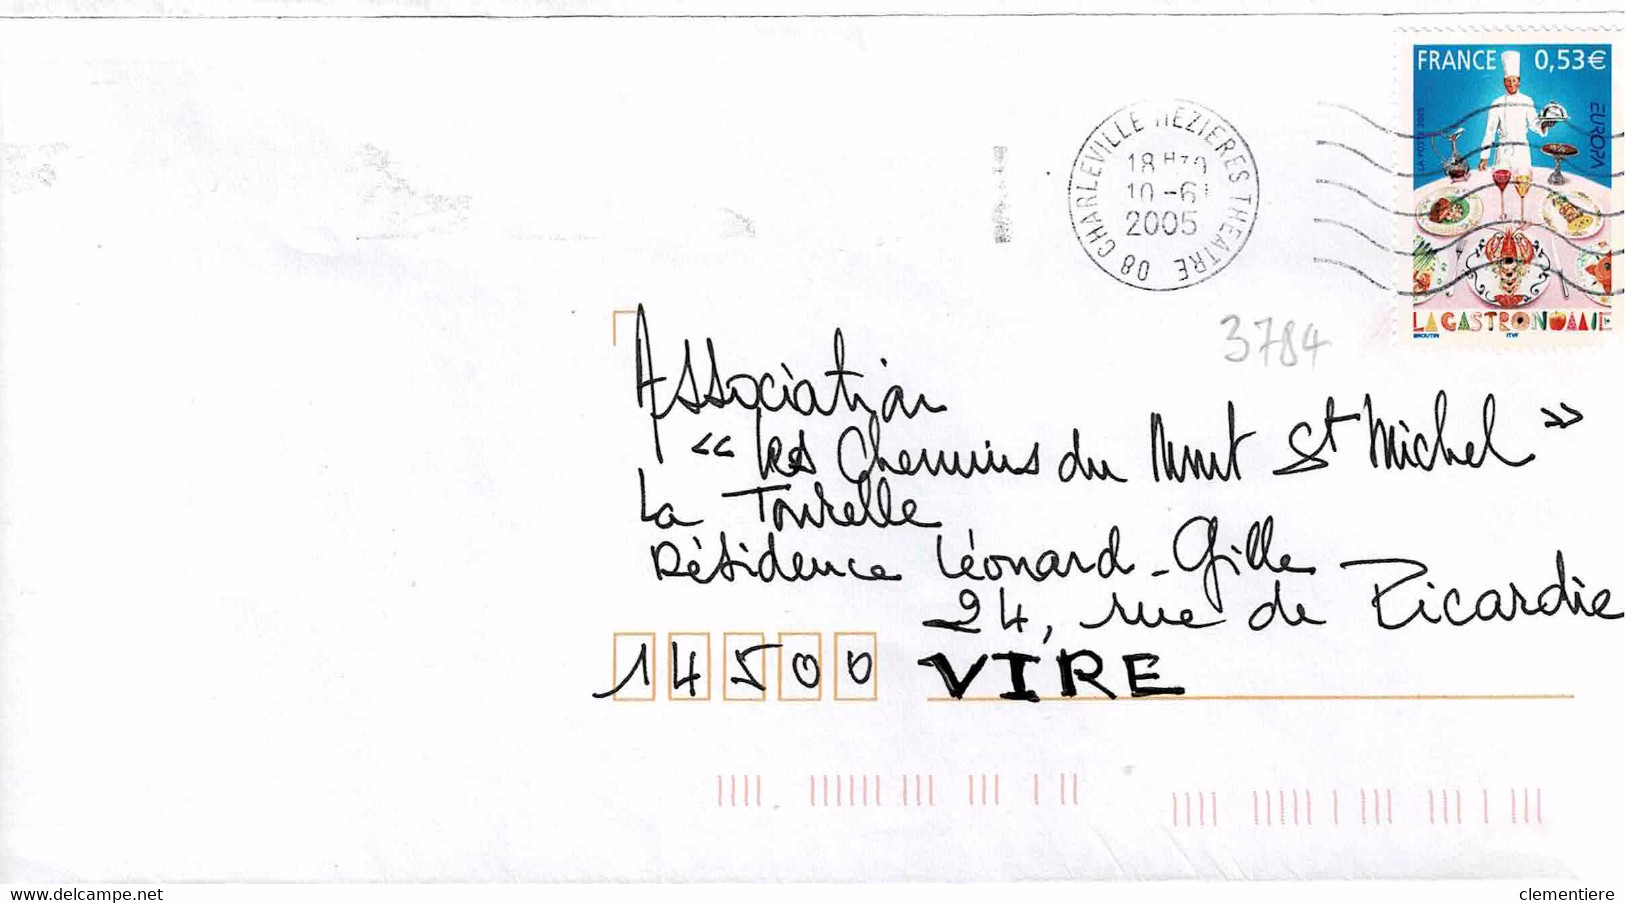 FRANCE 0,53€
EUROPA
LA POSTE 2005
LA GASTRONOMIE
BROUTIN ITVF
08 CHARLEVILLE MEZIERES THEATRE
18 H30
10 -6
2005
3784
Association
« Les Chemins du Mont St Michel »
La Tourelle
Résidence Léonard-Gille
24, rue de Picardie
14500 VIRE
www.delcampe.net
clementiere